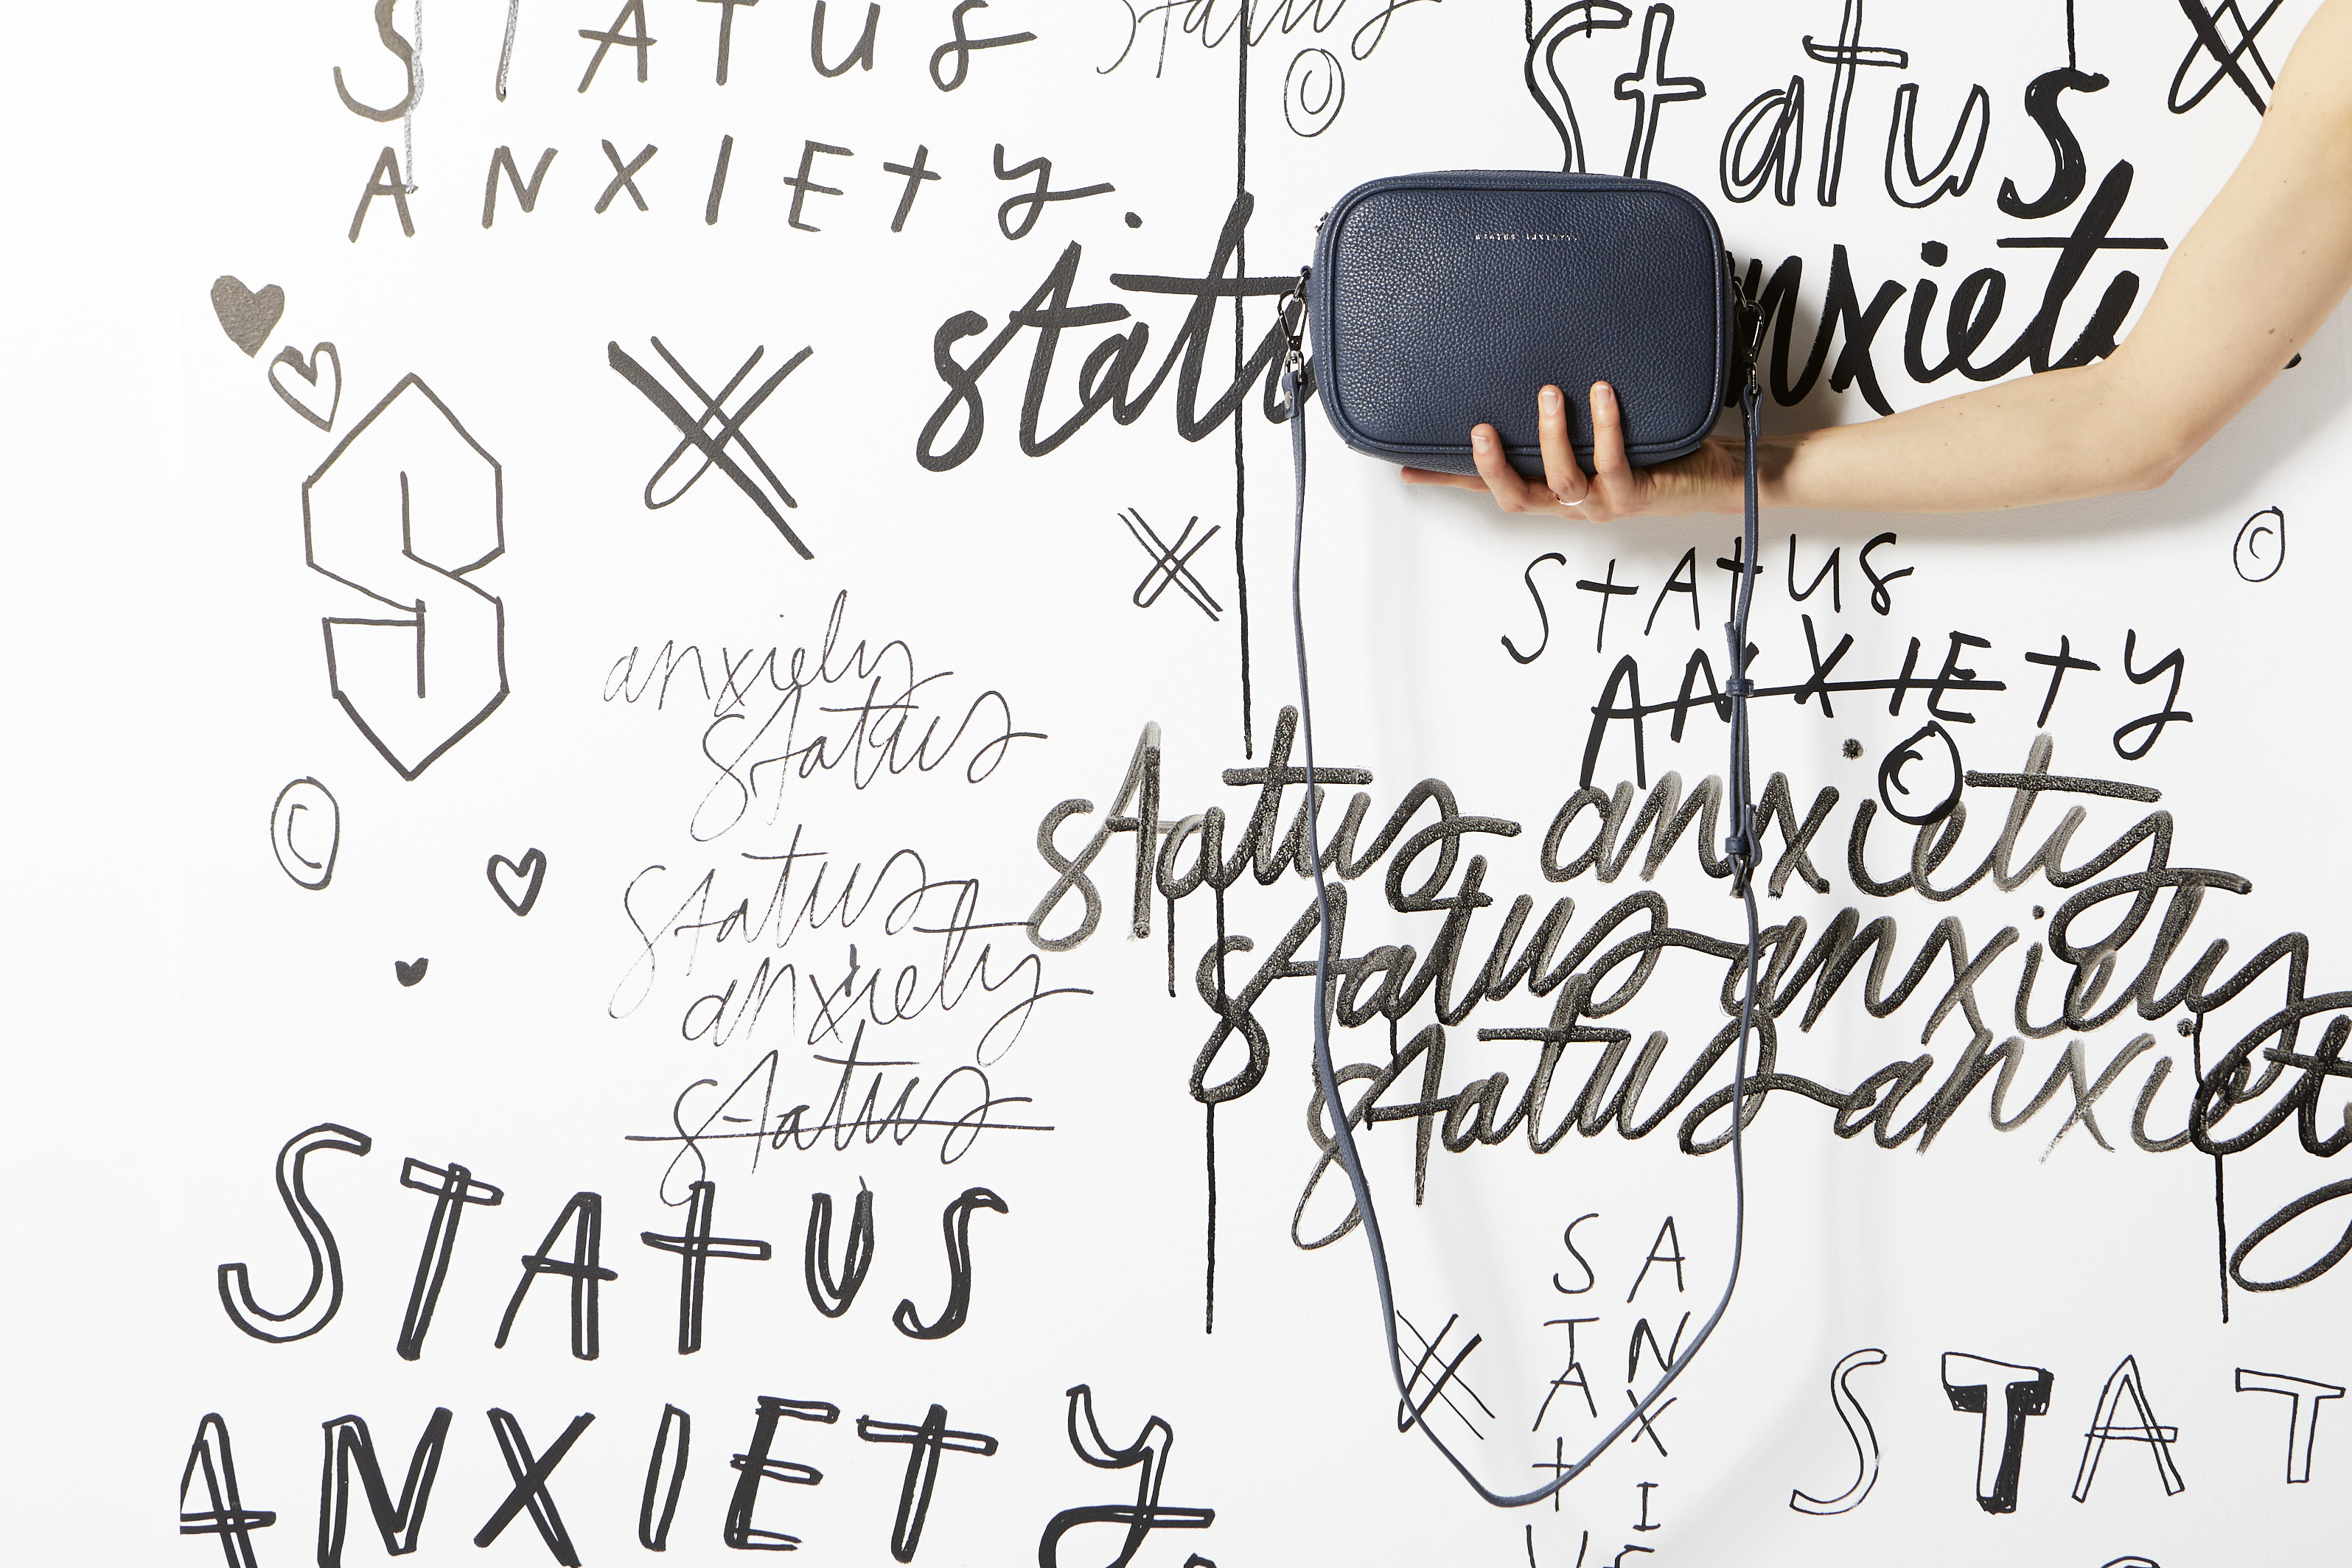 STATUS
ANXIEty.
status
©
Status
anxiety
statu
STATUS ANXIETY
©
StAtUS
ANXIEty
©
anxiety
status
©
status anxiety
status
anxiety
status anxiety
status
status anxiety
STAtUS
ANXIETy.
S A
T N
A X
t I
U E
STAT